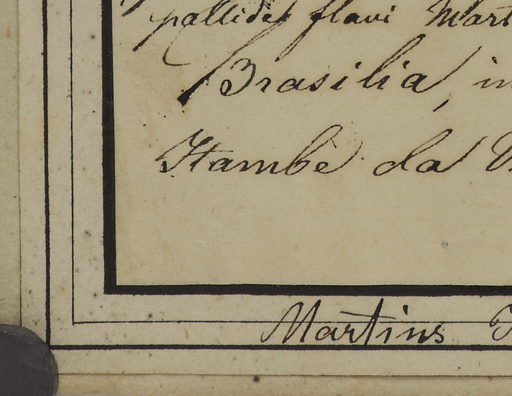 pallide flavi Mart
Brasilia, in
Itambé da
Martins